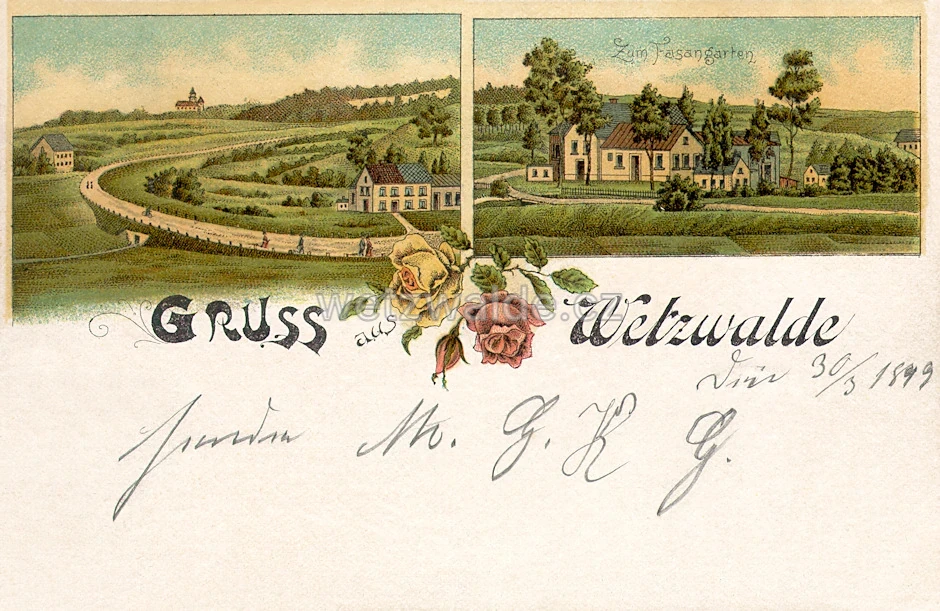 Zum Fasangarten
GRUSS aus Wetzwalde
wetzwalde.cz
30/3 1899
M. G. K G.